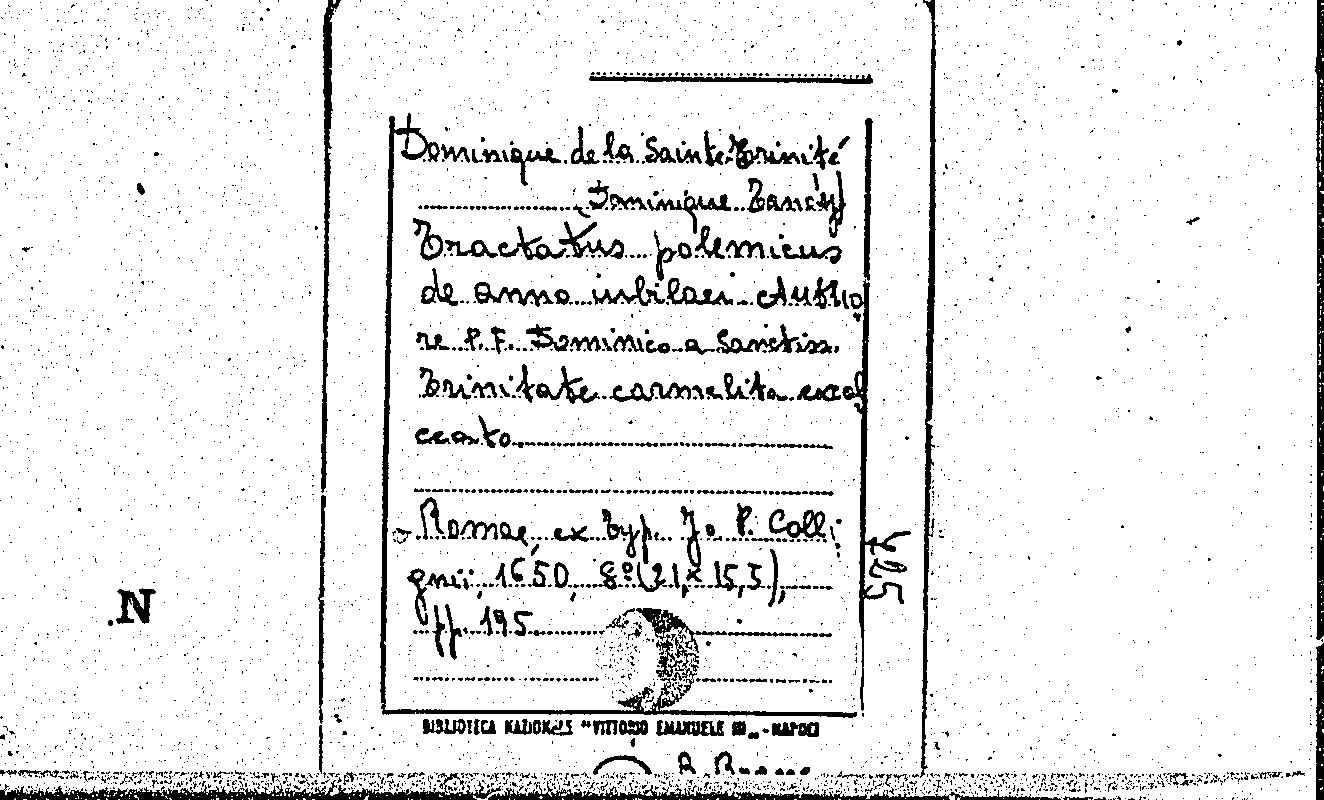 Dominique de la Sainte-Trinité
Dominique Tancy
Tractatus polemicus
de anno iubilaei. Autho
re P. F. Dominico a Sanctiss.
Trinitate carmelita excal
ceato.
Romae, ex Typ. Jo P. Colli
gnii, 1650, 8º (21 x 15,5),
pp. 195
N
BIBLIOTECA NAZIONALE "VITTORIO EMANUELE III" - NAPOLI